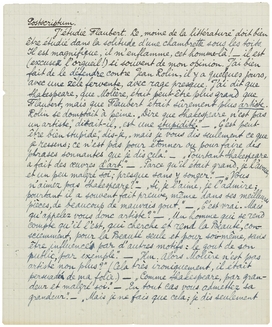 Postscriptum.
J'étudie Flaubert. Le moine de la littérature doit bien
être étudié dans la solitude d'une chambrette sous les toits.
Il est magnifique, il m'enflamme, cet homme-là — il est
(excuse l'orgueil!) si souvent de mon opinion. J'ai bien
fait de le défendre contre Jean Rolin, il y a quelques jours,
avec une rage presque. J'ai dit que
Shakespeare, que Molière, était peut être plus grand que
Flaubert, mais que Flaubert était sûrement plus artiste.
Rolin se à peine. "Dire que Shakespeare n'est pas
un artiste, disait-il, est une stupidité." — C'est peut-
être bien stupide, dis-je, mais je vous dis seulement ce que
je ressens; ce n'est pas pour étonner ou pour faire des
phrases sonnantes que je dis cela. — Pourtant Shakespeare
a fait des œuvres d'art. — Parce qu'il était grand, je
et un peu malgré soi; presque sans y songer. — Vous
n'aimez pas Shakespeare? — Si, je l'aime, je l'admire,
pourtant il a souvent petit nature, même dans ses meilleures
pièces, de beaucoup de mauvais goût. — C'est vrai. Mais
qu'appelez vous donc artiste? — Un homme qui se rend
compte qu'il l'est, qui cherche et rend la Beauté, con-
sciemment, pour la Beauté seule et pour soi-même, sans
être influencé par d'autres motifs: le goût de son
public, par exemple! — Alors Molière n'est pas
artiste non plus? (Cela très ironiquement, il était
persuadé de ma folie) — Comme Shakespeare, par gran-
deur et malgré soi. — En tout cas vous admettez sa
grandeur! — Mais je ne fais que cela; je dis seulement